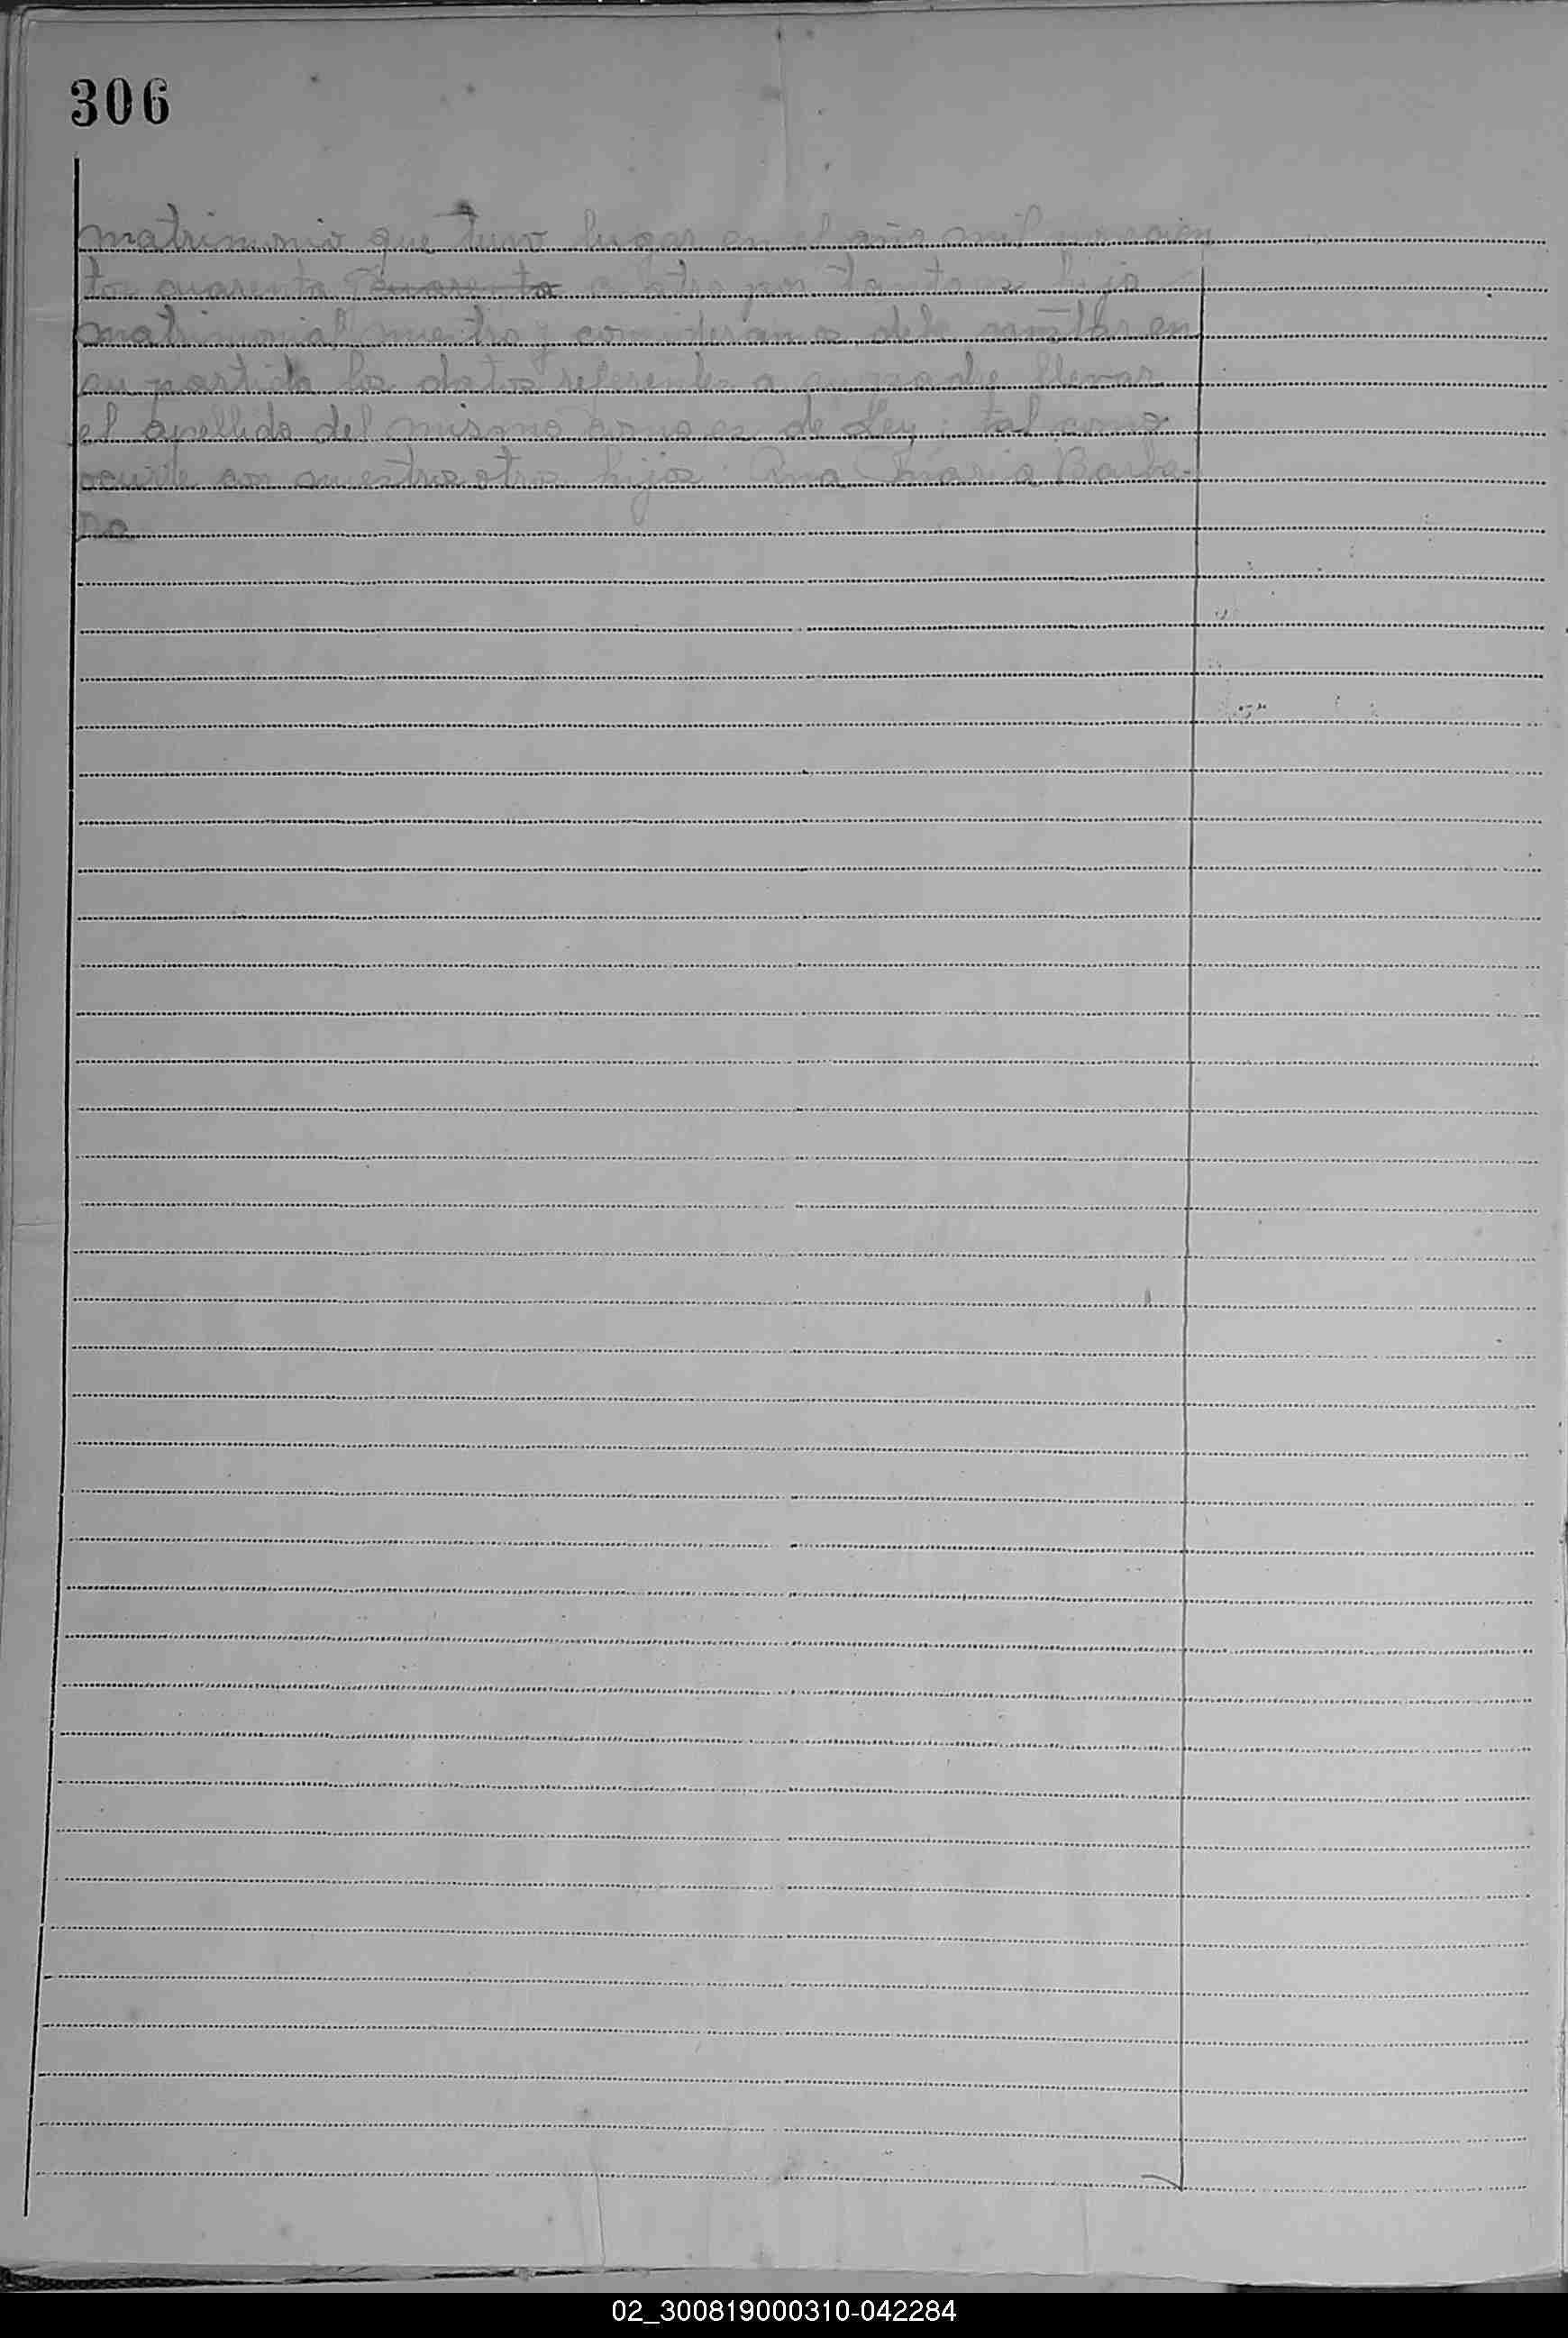 306
matrimonio que tuvo lugar en el año mil novecien
tos cuarenta cuarenta cuatro por tanto es hija
matrimonial nuestra y consideramos debe anotar en
su partida los datos referentes a su padre llevar
el apellido del mismo como es de Ley; tal como
ocurre con nuestros otros hijos. Ana Maria Barba-
no
02_300819000310-042284